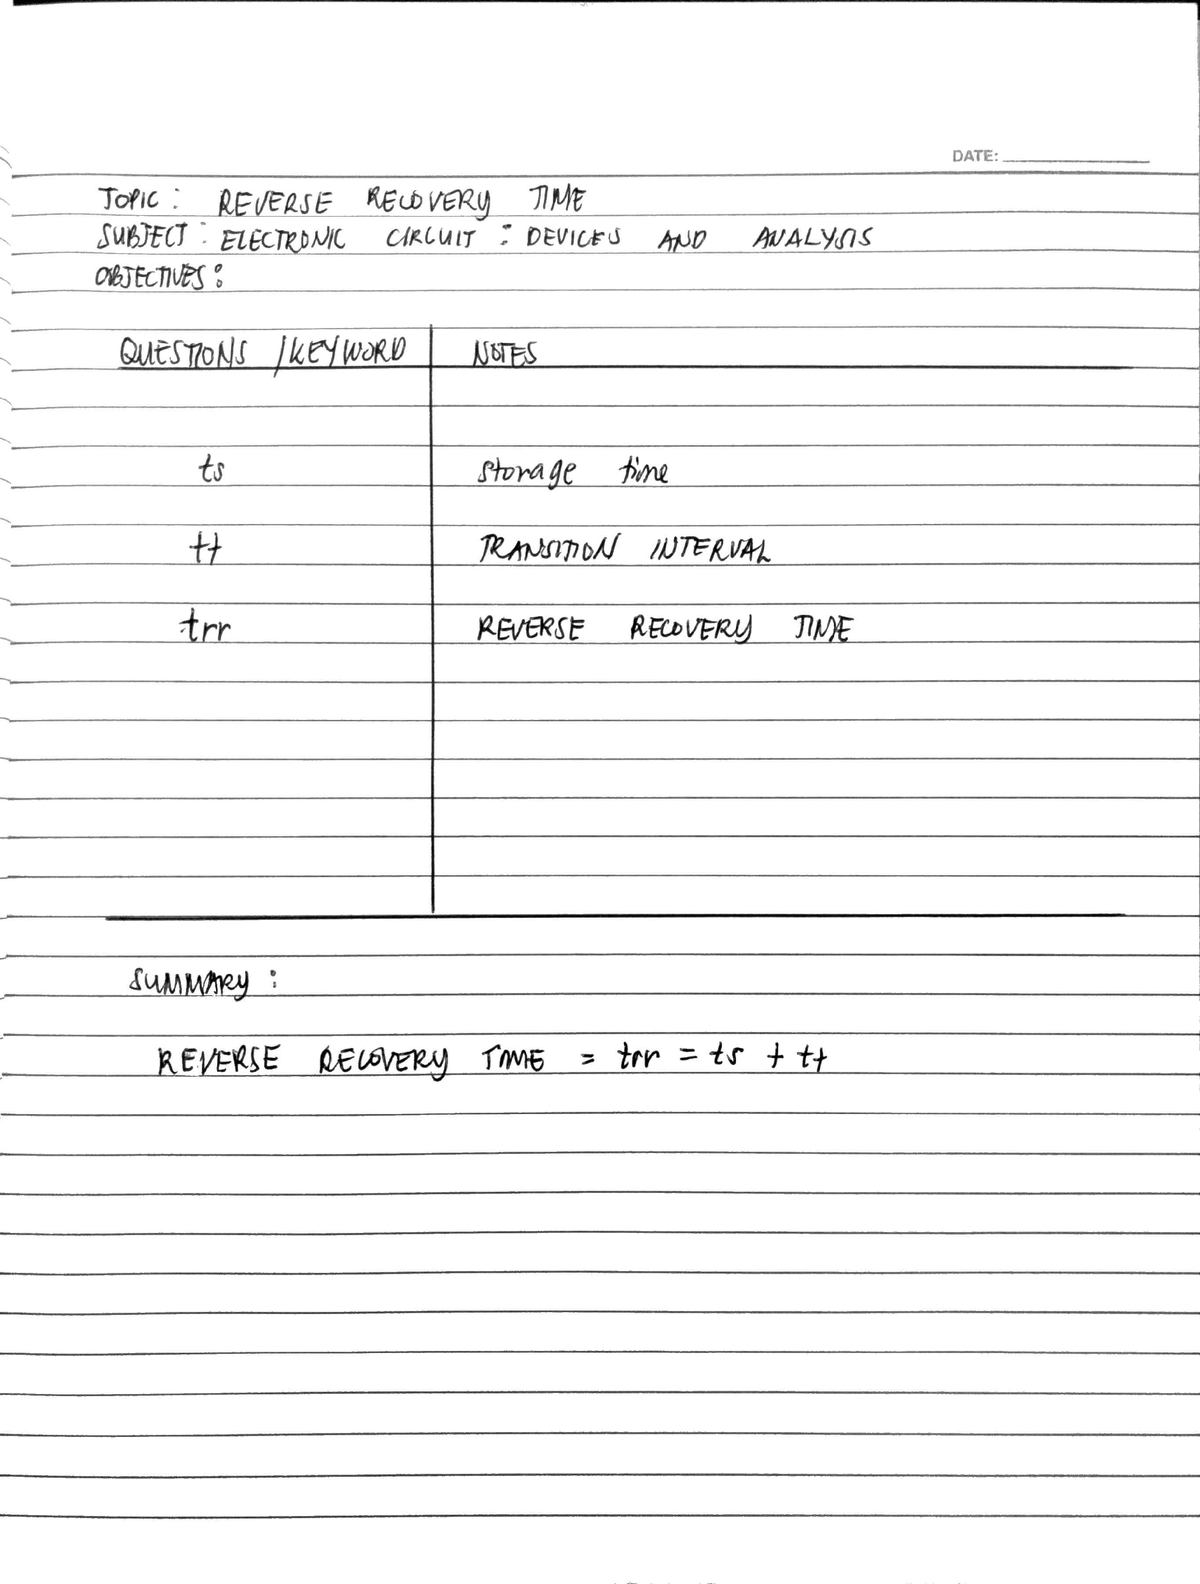 DATE:
TOPIC : REVERSE RECOVERY TIME
SUBJECT : ELECTRONIC CIRCUIT : DEVICES AND ANALYSIS
OBJECTIVES :
QUESTIONS /KEYWORD NOTES
ts storage time
tt TRANSITION INTERVAL
trr REVERSE RECOVERY TIME
SUMMARY :
REVERSE RECOVERY TIME = trr = ts + tt